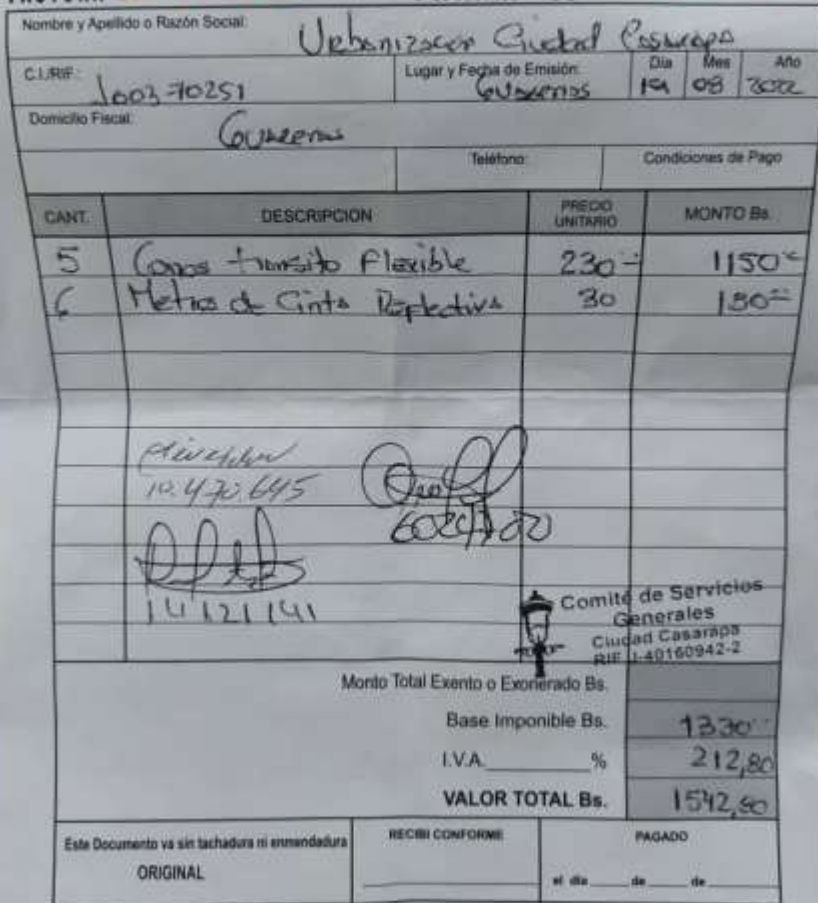 Nombre y Apellido o Razón Social: Urbanizacion Ciudad Casarapa
C.I./RIF: J00370251 Lugar y Fecha de Emisión: Guarenas Día 19 Mes 08 Año 2022
Domicilio Fiscal: Guarenas
Teléfono: Condiciones de Pago
CANT. DESCRIPCION PRECIO UNITARIO MONTO Bs.
5 Conos transito Flexible 230 1150
6 Metros de Cinta Reflectiva 30 180
10.470.645
14121141
Comité de Servicios
Generales
Ciudad Casarapa
RIF J-40160942-2
Monto Total Exento o Exonerado Bs.
Base Imponible Bs. 1330
I.V.A. % 212,80
VALOR TOTAL Bs. 1542,80
Este Documento va sin tachadura ni enmendadura
ORIGINAL
RECIBI CONFORME
PAGADO
el día de de